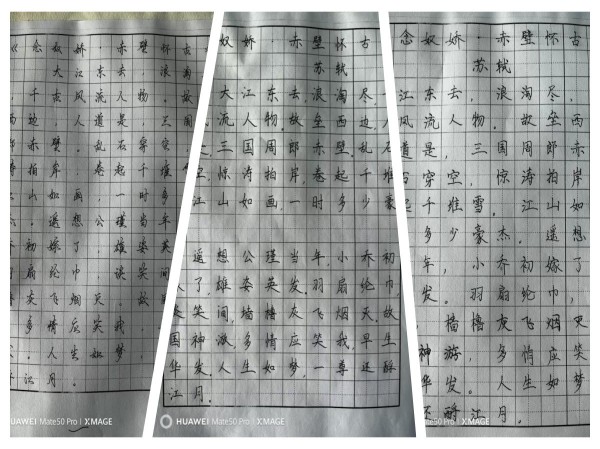 《念奴娇·赤壁怀古
大江东去,浪淘
千古风流人物。故
西边,人道是,三国
郎赤壁。乱石穿空
涛拍岸,卷起千堆
山如画,一时多
遥想公瑾当年
初嫁了,雄姿英
扇纶巾,谈笑间
灰飞烟灭。故
多情应笑我,
人生如梦,
江月。
HUAWEI Mate50 Pro | XMAGE
奴娇·赤壁怀古
苏轼
大江东去,浪淘尽,
流人物。故垒西边,人
三国周郎赤壁。乱石
惊涛拍岸,卷起千堆
江山如画,一时多少豪
遥想公瑾当年,小乔初
了,雄姿英发。羽扇纶巾,
笑间,樯橹灰飞烟灭。故
国神游,多情应笑我,早生
华发。人生如梦,一尊还酹
江月。
HUAWEI Mate50 Pro | XMAGE
念奴娇·赤壁怀古
苏轼
江东去,浪淘尽,
风流人物。故垒西
道是,三国周郎赤
穿空,惊涛拍岸
起千堆雪。江山如
多少豪杰。遥想
年,小乔初嫁了
发。羽扇纶巾,
樯橹灰飞烟灭
神游,多情应笑
华发。人生如梦
还酹江月。
Mate50 Pro | XMAGE